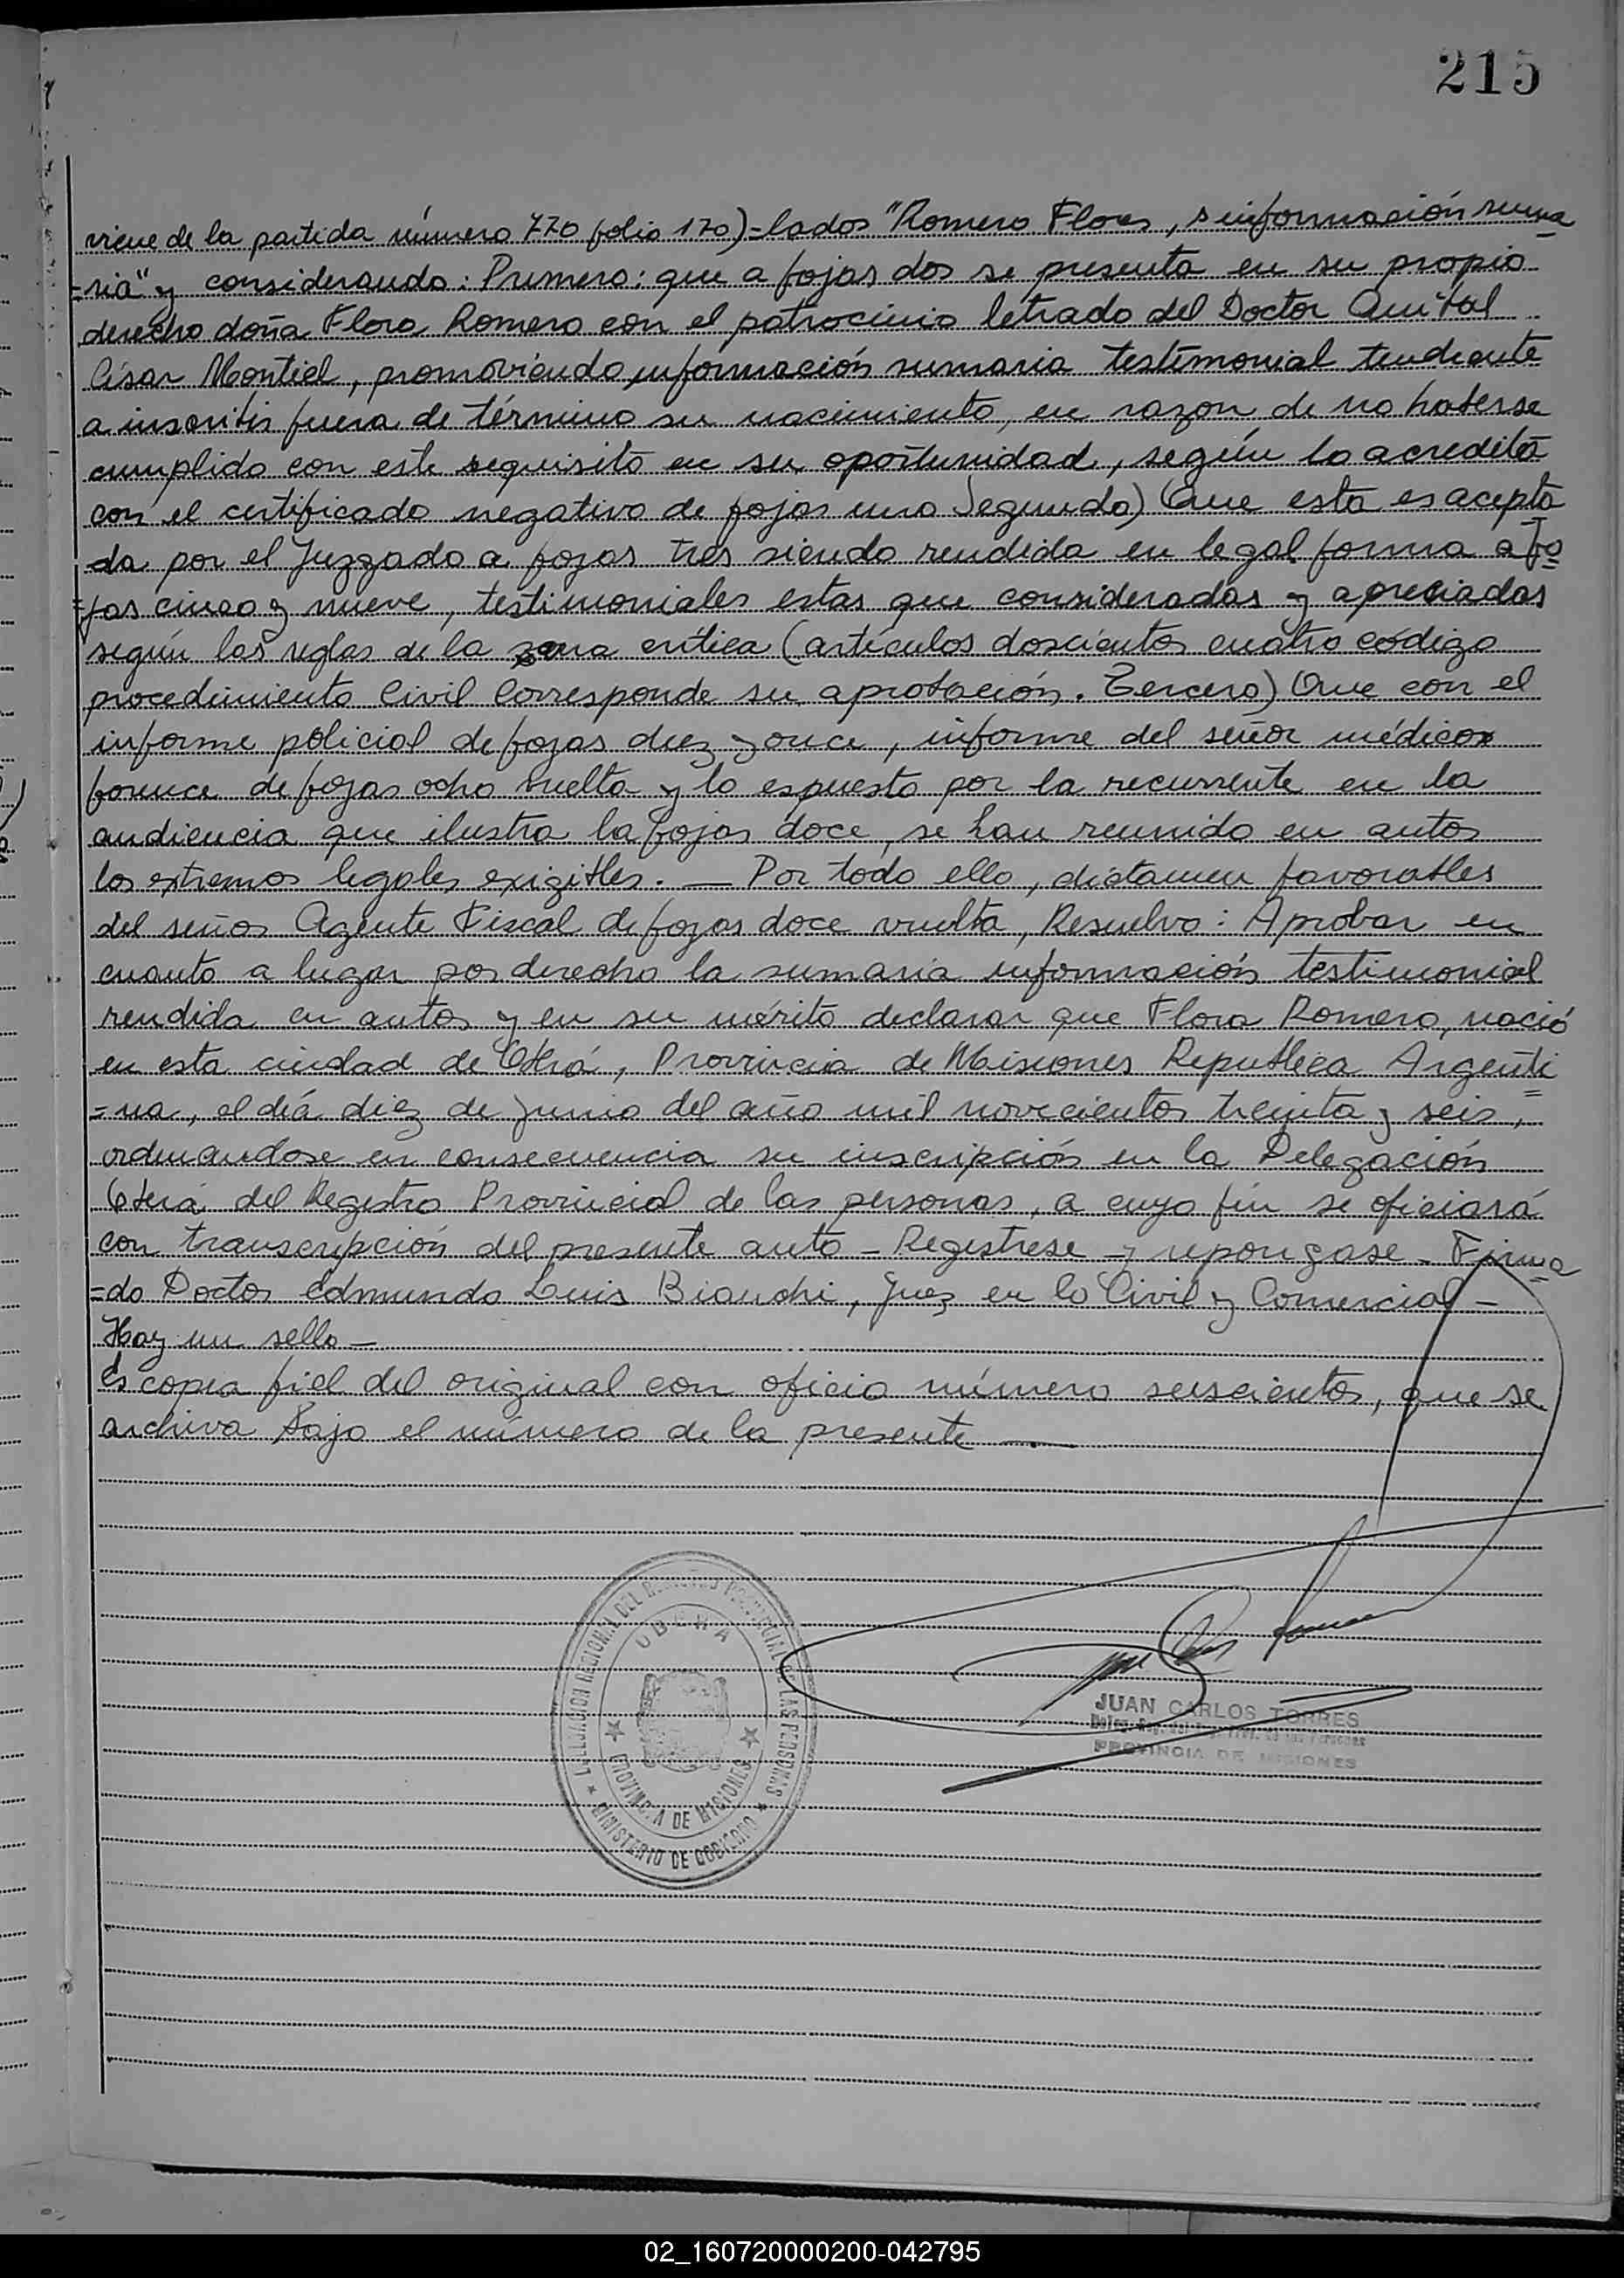 215
viene de la partida número 770 folio 170)=lados "Romero Flora, s información suma
=ria" y considerando: Primero: que a fojas dos se presenta en su propio
derecho doña Flora Romero con el patrocinio letrado del Doctor Anibal
César Montiel, promoviendo información sumaria testimonial tendiente
a inscribir fuera de término su nacimiento, en razon de no haberse
cumplido con este requisito en su oportunidad, según lo acredita
con el certificado negativo de fojas uno Segundo) Que esta es acepta
da por el Juzgado a fojas tres siendo rendida en legal forma a fo
=jas cinco y nueve, testimoniales estas que consideradas y apreciadas
según las reglas de la zana critica (artículos doscientos cuatro código
procedimiento Civil Corresponde su aprobación. Tercero) Que con el
informe policial de fojas diez y once, informe del señor médico
forence de fojas ocho vuelta y lo espuesto por la recurrente en la
audiencia que ilustra la fojas doce, se han reunido en autos
los extremos legales exigibles. — Por todo ello, dictamen favorables
del señor Agente Fiscal de fojas doce vuelta, Resuelvo: Aprobar en
cuanto a lugar por derecho la sumaria información testimonial
rendida en autos y en su mérito declarar que Flora Romero, nació
en esta ciudad de Oberá, Provincia de Misiones Republica Argenti
=na, el día diez de Junio del año mil novecientos treinta y seis,
ordenandose en consecuencia su inscripción en la Delegación
Oberá del Registro Provincial de las personas, a cuyo fin se oficiará
con transcripción del presente auto - Registrese y repongase - Firma
=do Doctor Edmundo Luis Bianchi, Juez en lo Civil y Comercial -
Hay un sello —
Es copia fiel del original con oficio número seiscientos, que se
archiva bajo el número de la presente —
DELEGACION REGIONAL DEL REGISTRO PROVINCIAL DE LAS PERSONAS
OBERA
PROVINCIA DE MISIONES
MINISTERIO DE GOBIERNO
JUAN CARLOS TORRES
PROVINCIA DE MISIONES
02_160720000200-042795